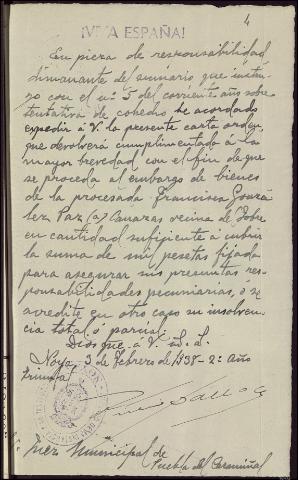 4
¡VIVA ESPAÑA!
En pieza de responsabilidad
dimanante de sumario que instru-
yo con el nº 5 del corriente año sobre
tentativa de cohecho he acordado
expedir á V. la presente carta orden,
que devolverá cumplimentada á la
mayor brevedad con el fin de que
se proceda al embargo de bienes
de la procesada Francisca Gonzá
lez Paz (a) Canazas vecina de Jobre
en cantidad suficiente á cubrir
la suma de mil pesetas fijada
para asegurar sus presuntas res-
ponsabilidades pecuniarias, ó se
acredite en otro caso su insolven-
cia total ó parcial.
Dios gue. á V. m. a.
Noya 3 de Febrero de 1938 - 2º año
triunfal
Juez Municipal de
Puebla del Caramiñal